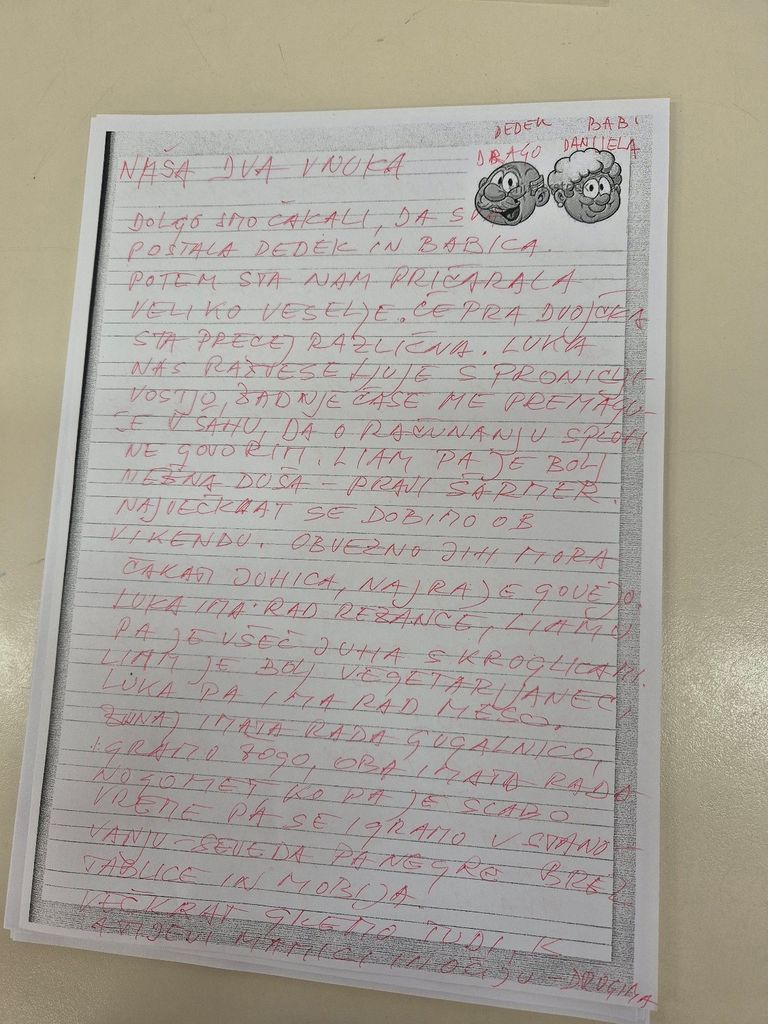 DEDEK BABI
DRAGO DANIJELA
NAŠA DVA VNUKA
DOLGO SMO ČAKALI, DA SVA
POSTALA DEDEK IN BABICA.
POTEM STA NAM PRIČARALA
VELIKO VESELJE. ČEPRA DVOJČKA
STA PRECEJ RAZLIČNA. LUKA
NAS RAZVESELJUJE S PRONICLJI-
VOSTJO, ZADNJE ČASE ME PREMAGU-
JE V ŠAHU, DA O RAČUNANJU SPLOH
NE GOVORIM. LIAM PA JE BOLJ
NEŽNA DUŠA - PRAVI ŠARMER.
NAJVEČKRAT SE DOBIMO OB
VIKENDU. OBVEZNO JIH MORA
ČAKATI JUHICA, NAJRAJE GOVEJO.
LUKA IMA RAD REZANCE, LIAMU
PA JE VŠEČ JUHA S KROGLICAMI.
LIAM JE BOLJ VEGETARIJANEC,
LUKA PA IMA RAD MESO.
ZUNAJ IMATA RADA GUGALNICO,
IGRAMO ŽOGO, OBA IMATA RADA
NOGOMET KO PA JE SLABO
VREME PA SE IGRAMO V STANO-
VANJU - SEVEDA PA NE GRE BREZ
TABLICE IN MOBIJA.
VEČKRAT GREMO TUDI K
MAMICI IN OČIJU - DRUGIMA